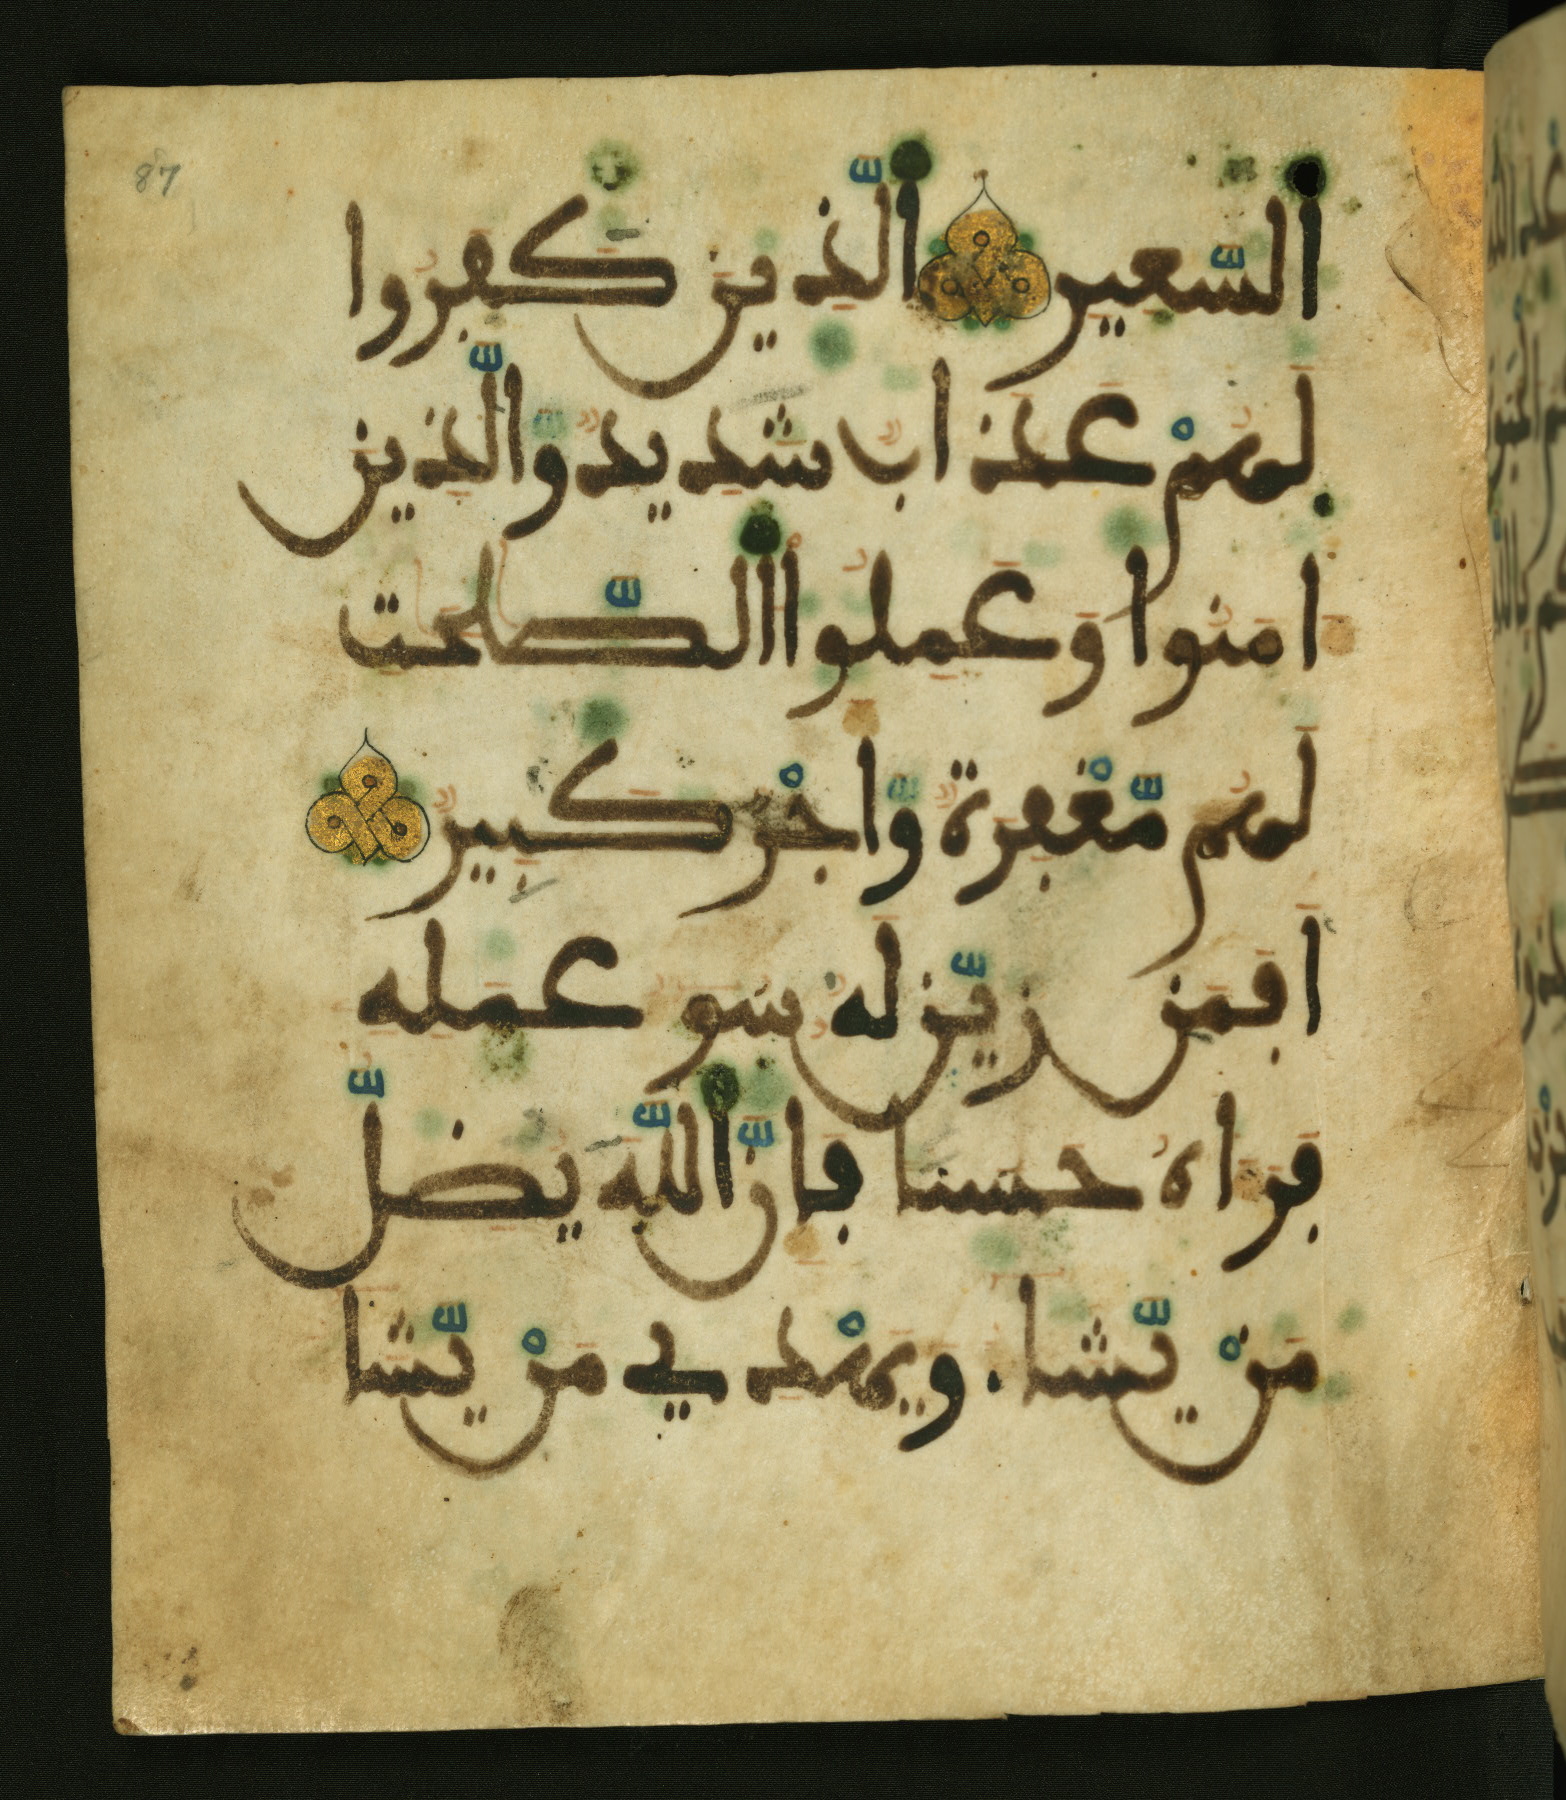 87
السَّعير الَّذين كفروا
لهمْ عذاب شديد والَّذين
امنوا وعملوا الصَّلحت
لهم مَّغْفرة وَّاجْر كبير
افمن زيّن له سو عمله
فراه حسنا فانَّ اللَّه يضلُّ
منْ يَّشا ويهْدي منْ يَّشا